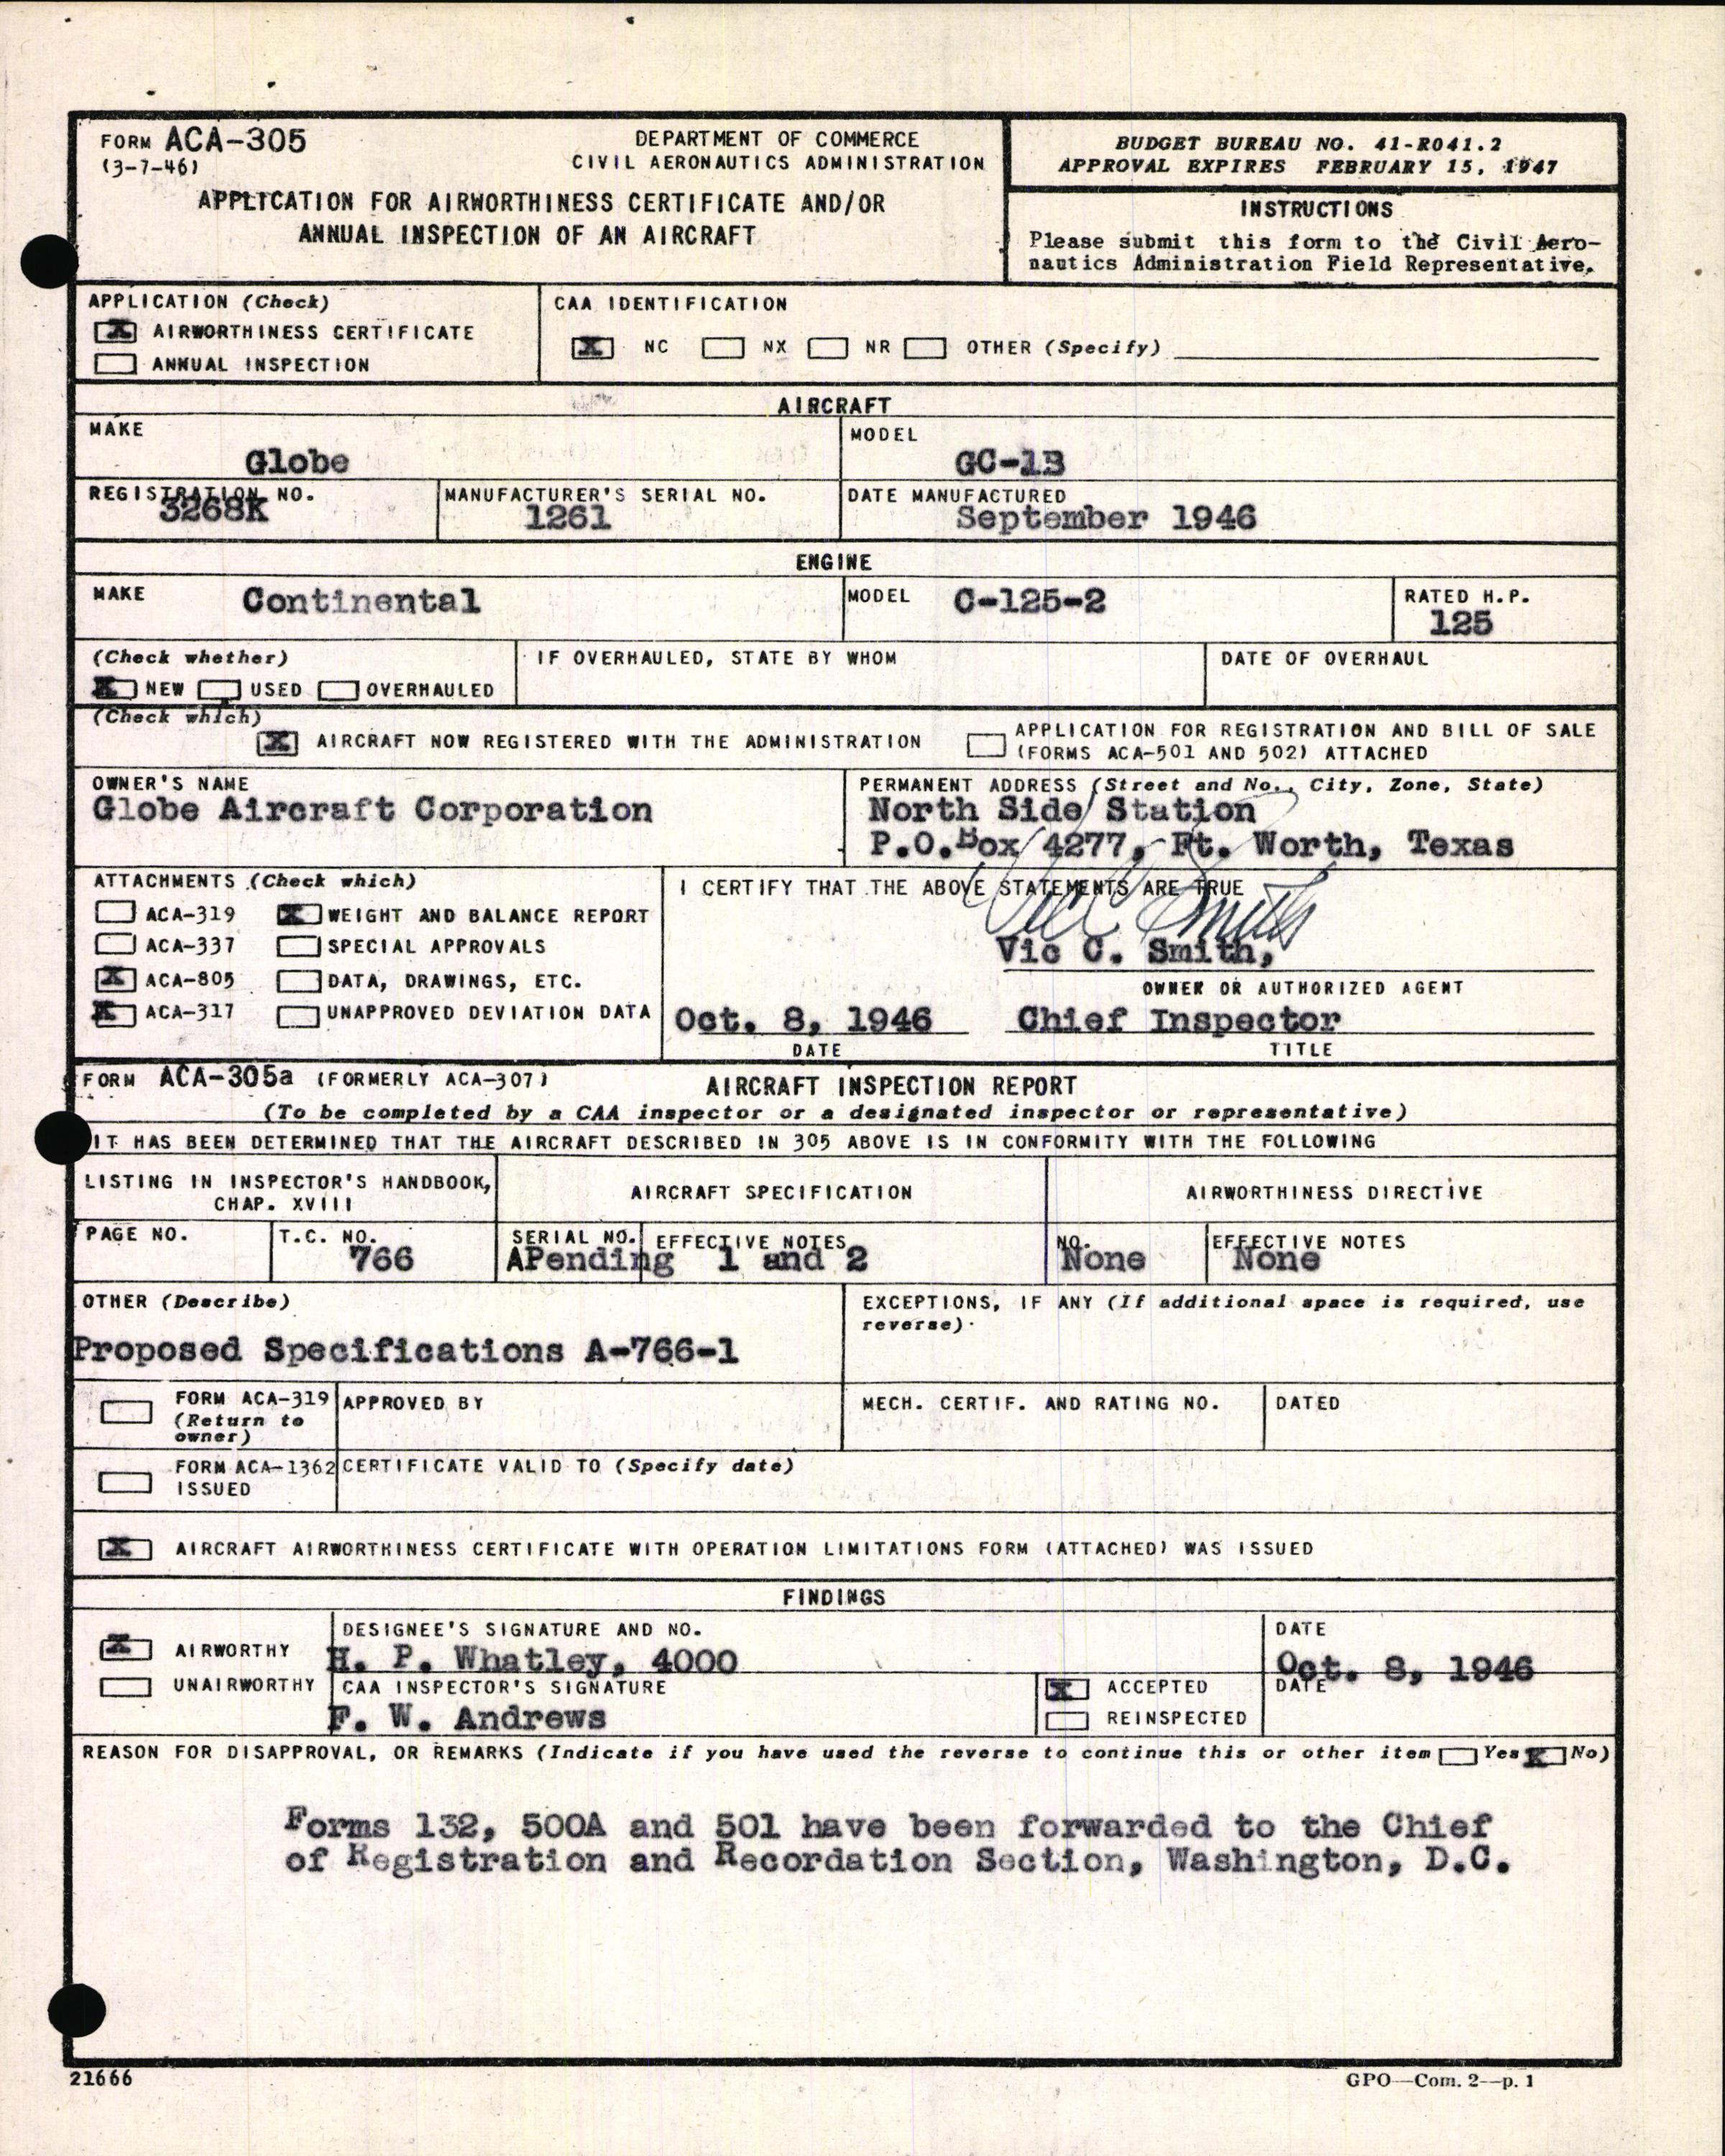 FORM ACA-305
(3-7-46)
DEPARTMENT OF COMMERCE
CIVIL AERONAUTICS ADMINISTRATION
APPLICATION FOR AIRWORTHINESS CERTIFICATE AND/OR
ANNUAL INSPECTION OF AN AIRCRAFT
BUDGET BUREAU NO. 41-R041.2
APPROVAL EXPIRES FEBRUARY 15, 1947
INSTRUCTIONS
Please submit this form to the Civil Aero-
nautics Administration Field Representative.
APPLICATION (Check)
X AIRWORTHINESS CERTIFICATE
ANNUAL INSPECTION
CAA IDENTIFICATION
X NC NX NR OTHER (Specify)
AIRCRAFT
MAKE
Globe
MODEL
GC-1B
REGISTRATION NO.
3268K
MANUFACTURER'S SERIAL NO.
1261
DATE MANUFACTURED
September 1946
ENGINE
MAKE Continental
MODEL C-125-2
RATED H.P.
125
(Check whether)
X NEW USED OVERHAULED
IF OVERHAULED, STATE BY WHOM
DATE OF OVERHAUL
(Check which)
X AIRCRAFT NOW REGISTERED WITH THE ADMINISTRATION
APPLICATION FOR REGISTRATION AND BILL OF SALE
(FORMS ACA-501 AND 502) ATTACHED
OWNER'S NAME
Globe Aircraft Corporation
PERMANENT ADDRESS (Street and No., City, Zone, State)
North Side Station
P.O.Box 4277, Ft. Worth, Texas
ATTACHMENTS (Check which)
ACA-319 X WEIGHT AND BALANCE REPORT
ACA-337 SPECIAL APPROVALS
X ACA-805 DATA, DRAWINGS, ETC.
X ACA-317 UNAPPROVED DEVIATION DATA
I CERTIFY THAT THE ABOVE STATEMENTS ARE TRUE
Vic C Smith
Vic C. Smith,
OWNER OR AUTHORIZED AGENT
Oct. 8, 1946 Chief Inspector
DATE TITLE
FORM ACA-305a (FORMERLY ACA-307) AIRCRAFT INSPECTION REPORT
(To be completed by a CAA inspector or a designated inspector or representative)
IT HAS BEEN DETERMINED THAT THE AIRCRAFT DESCRIBED IN 305 ABOVE IS IN CONFORMITY WITH THE FOLLOWING
LISTING IN INSPECTOR'S HANDBOOK,
CHAP. XVIII
AIRCRAFT SPECIFICATION
AIRWORTHINESS DIRECTIVE
PAGE NO.
T.C. NO.
766
SERIAL NO.
APending
EFFECTIVE NOTES
1 and 2
NO.
None
EFFECTIVE NOTES
None
OTHER (Describe)
Proposed Specifications A-766-1
EXCEPTIONS, IF ANY (If additional space is required, use
reverse).
FORM ACA-319
(Return to
owner)
APPROVED BY
MECH. CERTIF. AND RATING NO.
DATED
FORM ACA-1362
ISSUED
CERTIFICATE VALID TO (Specify date)
X AIRCRAFT AIRWORTHINESS CERTIFICATE WITH OPERATION LIMITATIONS FORM (ATTACHED) WAS ISSUED
FINDINGS
X AIRWORTHY
UNAIRWORTHY
DESIGNEE'S SIGNATURE AND NO.
H. P. Whatley, 4000
DATE
Oct. 8, 1946
CAA INSPECTOR'S SIGNATURE
F. W. Andrews
X ACCEPTED
REINSPECTED
DATE
REASON FOR DISAPPROVAL, OR REMARKS (Indicate if you have used the reverse to continue this or other item Yes X No)
Forms 132, 500A and 501 have been forwarded to the Chief
of Registration and Recordation Section, Washington, D.C.
21666
GPO—Com. 2—p. 1